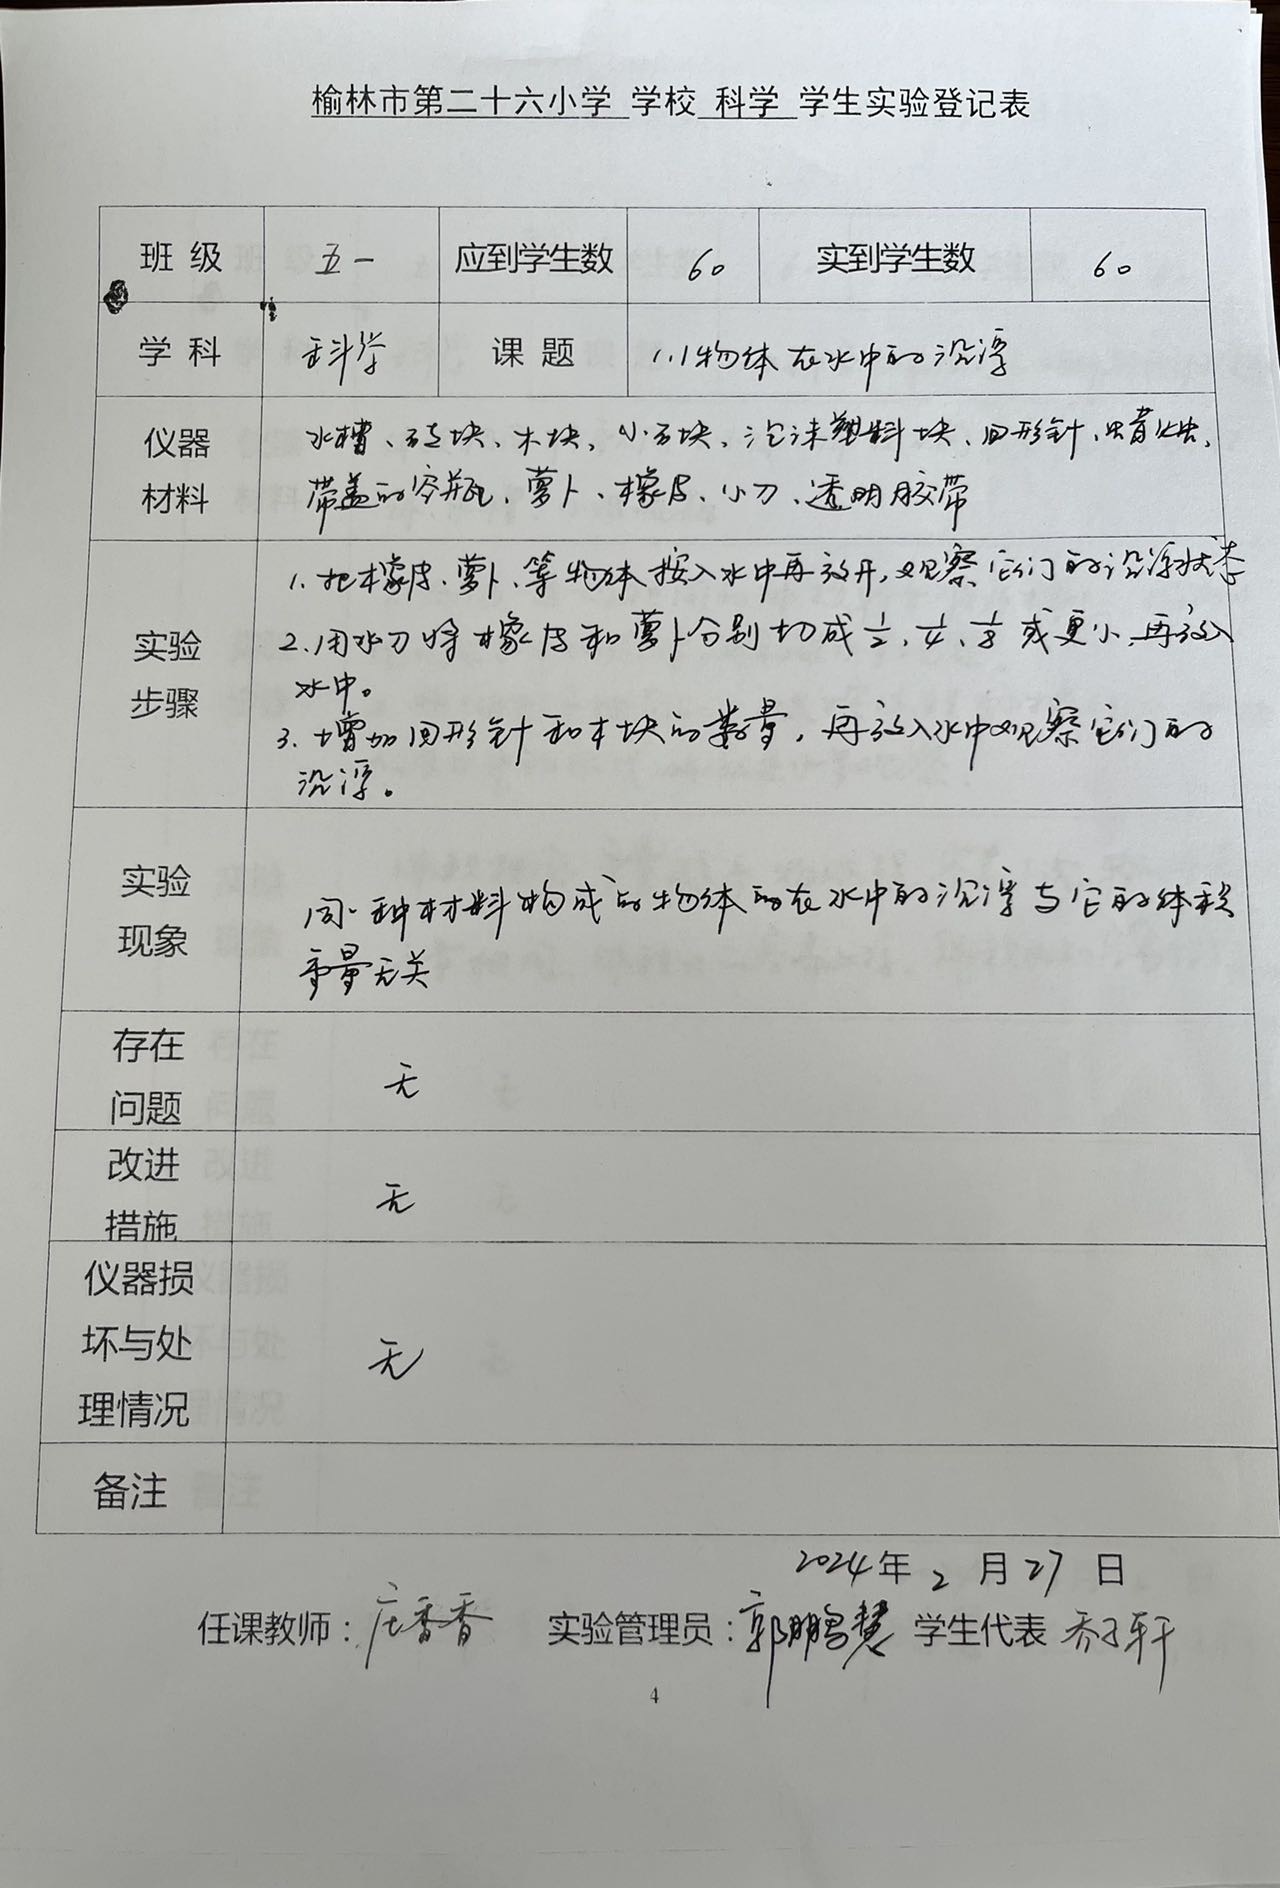 榆林市第二十六小学 学校 科学 学生实验登记表
班 级 五一 应到学生数 60 实到学生数 60
学 科 科学 课 题 1.1物体在水中的沉浮
仪器 水槽、砖块、木块、小石块、泡沫塑料块、回形针、蜡烛、
材料 带盖的空瓶、萝卜、橡皮、小刀、透明胶带
1.把橡皮、萝卜、等物体按入水中再放开,观察它们的沉浮状态
实验 2.用小刀将橡皮和萝卜分别切成1/2、1/4、1/8或更小,再放入
步骤 水中。
3.增加回形针和木块的数量,再放入水中观察它们的
沉浮。
实验 同一种材料构成的物体的在水中的沉浮与它的体积
现象 重量无关
存在
问题 无
改进
措施 无
仪器损
坏与处 无
理情况
备注
2024年2月27日
任课教师:庄香香 实验管理员:郭鹏慧 学生代表 乔子轩
4